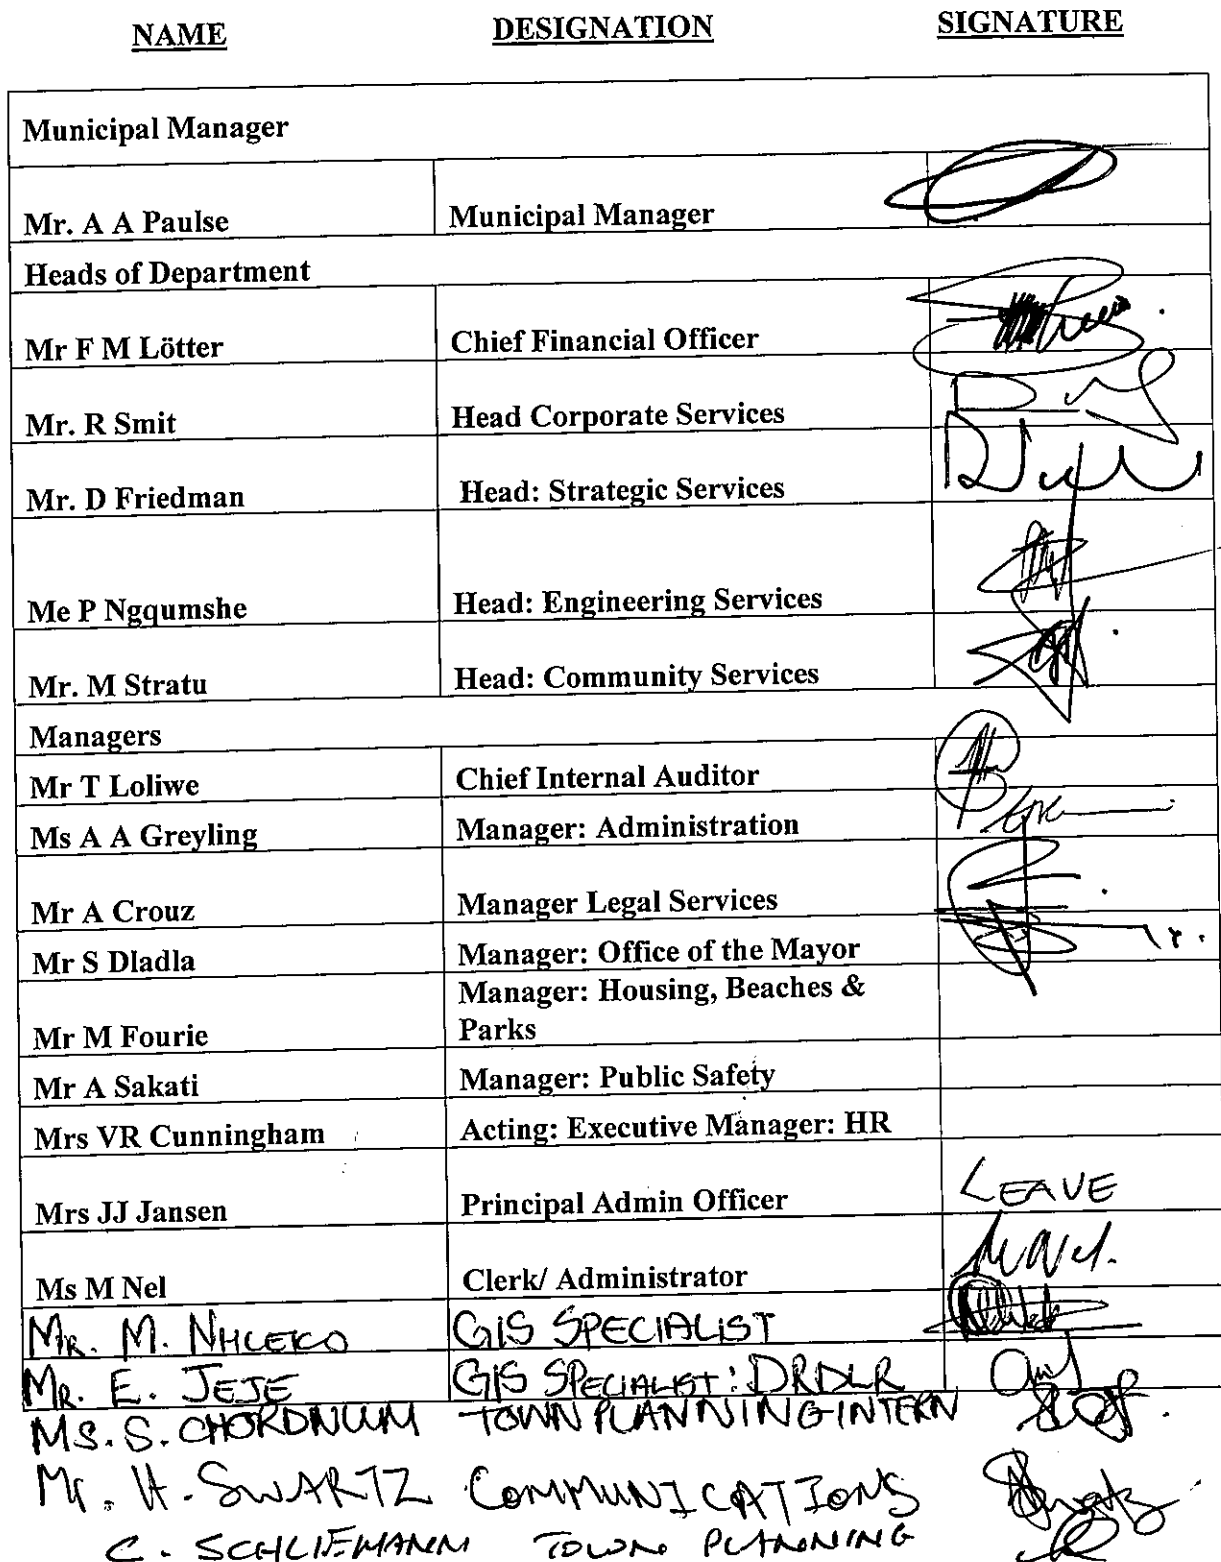 NAME DESIGNATION SIGNATURE
Municipal Manager
Mr. A A Paulse Municipal Manager
Heads of Department
Mr F M Lötter Chief Financial Officer
Mr. R Smit Head Corporate Services
Mr. D Friedman Head: Strategic Services
Me P Ngqumshe Head: Engineering Services
Mr. M Stratu Head: Community Services
Managers
Mr T Loliwe Chief Internal Auditor
Ms A A Greyling Manager: Administration
Mr A Crouz Manager Legal Services
Mr S Dladla Manager: Office of the Mayor
Mr M Fourie Manager: Housing, Beaches &
Parks
Mr A Sakati Manager: Public Safety
Mrs VR Cunningham Acting: Executive Manager: HR
Mrs JJ Jansen Principal Admin Officer LEAVE
Ms M Nel Clerk/ Administrator M Nel.
MR. M. NHLEKO GIS SPECIALIST
MR. E. JEJE GIS SPECIALIST: DRDLR
MS. S. CHORDNUM TOWN PLANNING INTERN
Mr. H. SWARTZ COMMUNICATIONS
C. SCHLIEMANN TOWN PLANNING